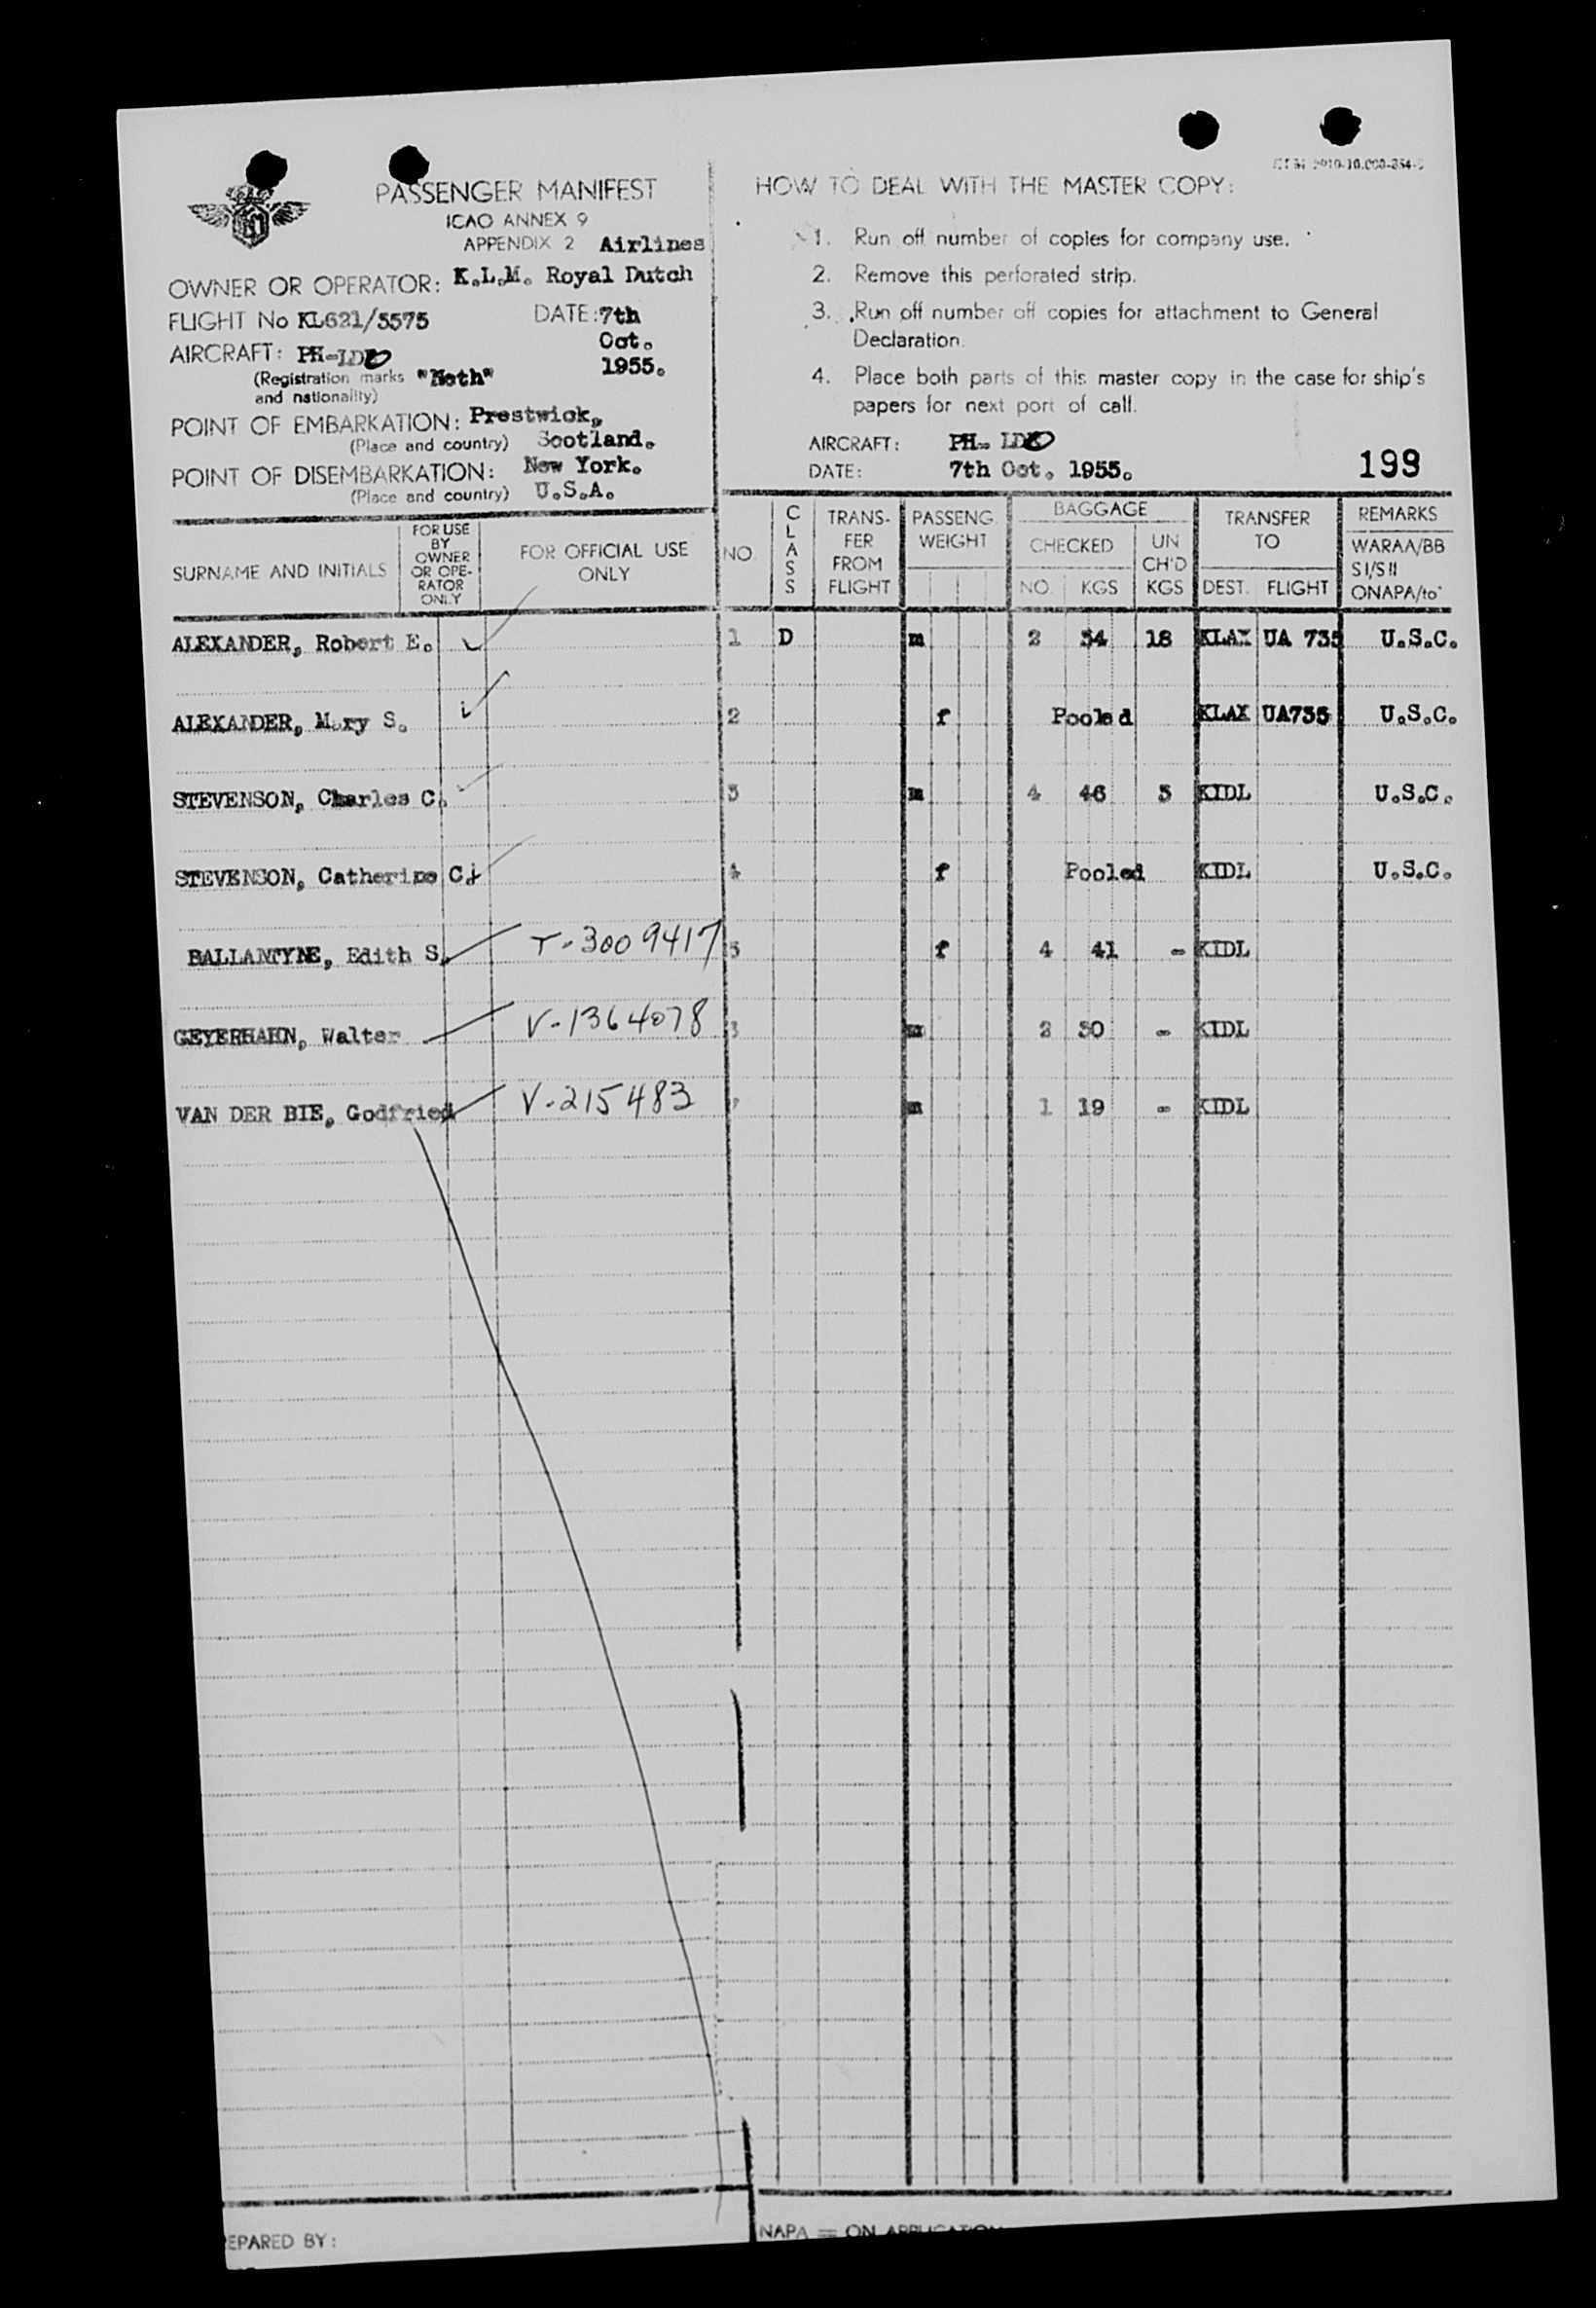 PASSENGER MANIFEST
ICAO ANNEX 9
APPENDIX 2 Airlines
OWNER OR OPERATOR: K.L.M. Royal Dutch
FLIGHT No KL621/5575 DATE: 7th
Oct.
1955.
AIRCRAFT: PH-LD
(Registration marks "Neth"
and nationality)
POINT OF EMBARKATION: Prestwick,
(Place and country) Scotland.
POINT OF DISEMBARKATION: New York.
(Place and country) U.S.A.
HOW TO DEAL WITH THE MASTER COPY:
1. Run off number of copies for company use.
2. Remove this perforated strip.
3. Run off number off copies for attachment to General
Declaration.
4. Place both parts of this master copy in the case for ship's
papers for next port of call.
AIRCRAFT: PH-LD
DATE: 7th Oct. 1955.
199
SURNAME AND INITIALS
FOR USE
BY
OWNER
OR OPE-
RATOR
ONLY
FOR OFFICIAL USE
ONLY
NO.
CLASS
TRANS-
FER
FROM
FLIGHT
PASSENG.
WEIGHT
BAGGAGE
CHECKED
NO. KGS
UN
CH'D
KGS
TRANSFER
TO
DEST. FLIGHT
REMARKS
WARAA/BB
SI/SII
ONAPA/to'
ALEXANDER, Robert E. 1 D m 2 34 18 KLAX UA 735 U.S.C.
ALEXANDER, Mary S. 2 f Pooled KLAX UA735 U.S.C.
STEVENSON, Charles C. 3 m 4 46 5 KIDL U.S.C.
STEVENSON, Catherine C. 4 f Pooled KIDL U.S.C.
BALLANTYNE, Edith S. T-3009417 5 f 4 41 - KIDL
GEYERHAHN, Walter V-1364078 m 2 30 - KIDL
VAN DER BIE, Godfried V-215483 m 1 19 - KIDL
EPARED BY:
NAPA = ON APPLICATION